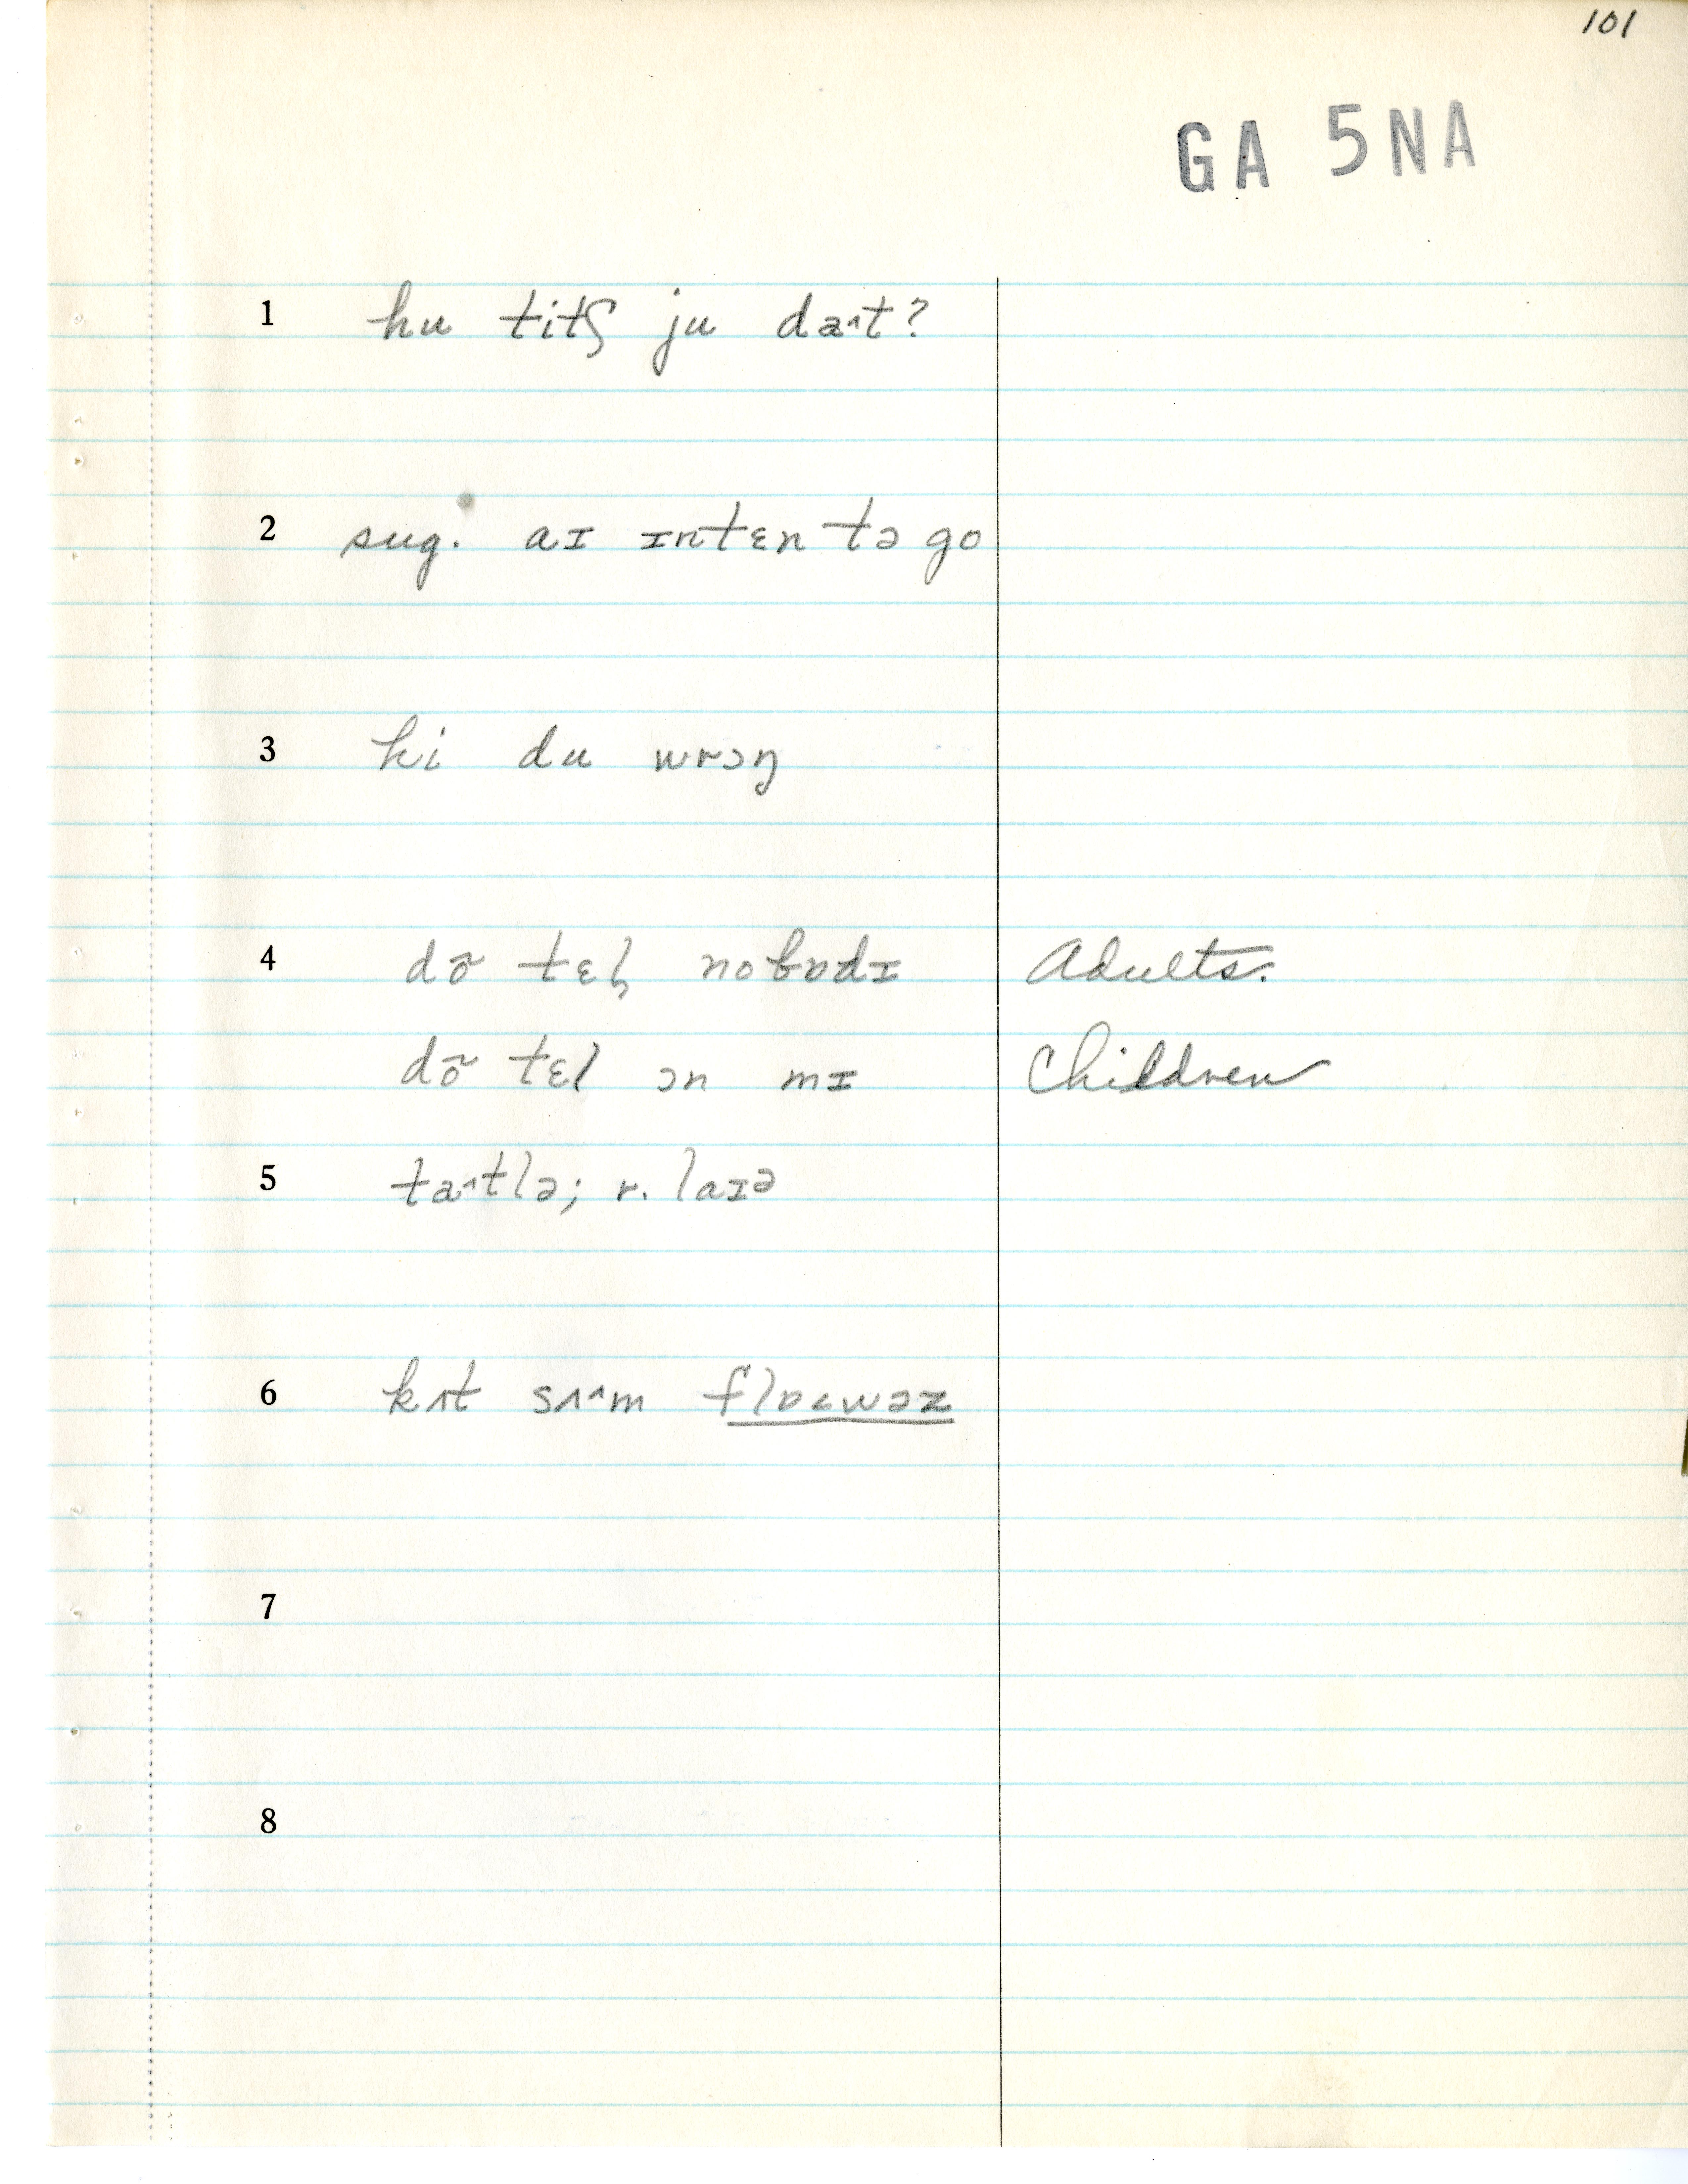 101
GA 5NA
1 hu titʃ ju da˄t?
2 sug. aɪ ɪntɛn tə go
3 hi du wrɔŋ
4 dõ tɛl̥ nobɒdɪ Adults.
dõ tɛl ɔn mɪ Children
5 ta˄tlə; r. laɪə
6 kʌt sʌ˄m flɒ˂wəz
7
8